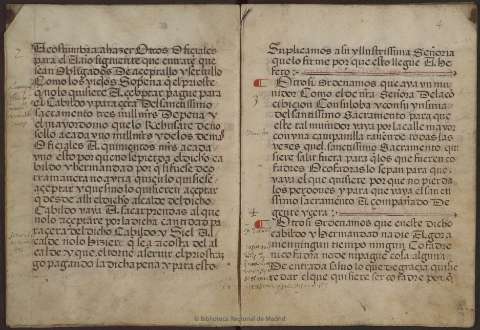 Acostunbra a hazer Otros Oficiales
para el Año siguiente que entrare que
sean Obligados De aceptallo y servillo
Como los viejos So pena q el prioste
q no lo quisiere Aceptar pague para
el Cabildo y para cera Del sanctissimo
sacramento tres mill mrs De pena y
el mayordomo que lo Rehusare De no
sello acada uno mill mrs y delos demas
Oficiales A quinientos mrs acada
uno esto por que no se pierda el dicho ca
bildo y hermandad por q si fuese De o
tra manera no avria quien lo quisiese
aceptar y que si no lo quisieren aceptar
q desde alli el dicho alcalde del dicho
Cabildo vaya A sacar prendas al que
no lo aceptare por la dicha cantidad pa
ra cera del dicho Cabildo y Si el Al
calde no lo hiziere q sea acosta del al
calde y que el torne a servir el priostaz
go pagando la dicha pena y para esto
Suplicamos a su yllustrissima Señoria
que lo firme por que esto llegue A he
feto
Otrosi Ordenamos que aya un mu
nidor Como el de nra Señora Dela co
cibicion Con su loba y con su ynsinia
del sanctissimo Sacramento para que
este tal munidor vaya por la calle mayor
con una campanilla tañendo todas las
vezes quel sanctissimo Sacramento qui
siere salir fuera para q los que fueren co
fadres De coforaos lo sepan para que
vaya el que quisiere por que no pierda
los perdones y para que vaya el sancti
ssimo sacramento Aconpañado De
gente y cera
Otrosi Ordenamos que en este dicho
cabildo y hermandad nadie Algora
men ningun tiempo ningun Cofadre
ni cofradia no de ni pague cosa alguna
De entrada salvo lo que de gracia quisie
re dar el que quisiere ser cofadre por q
© Biblioteca Regional de Madrid